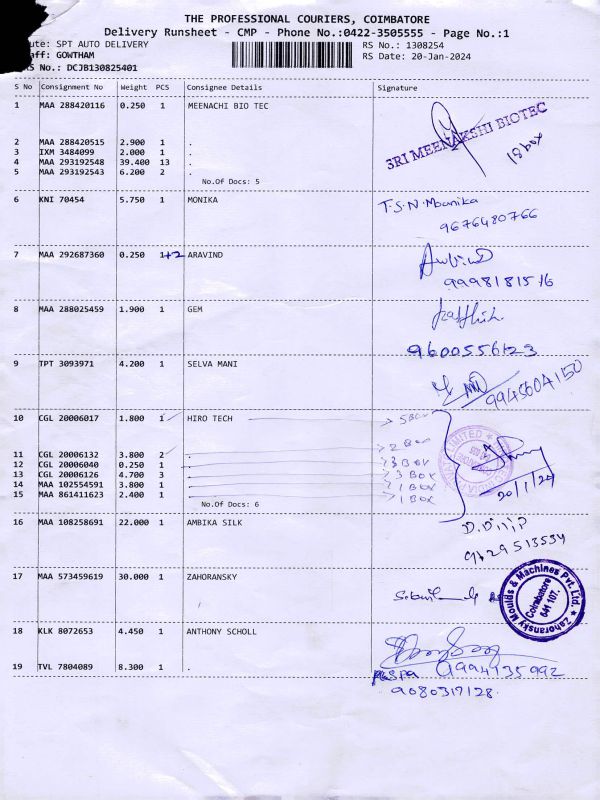 THE PROFESSIONAL COURIERS, COIMBATORE
Delivery Runsheet - CMP - Phone No.:0422-3505555 - Page No.:1
ute: SPT AUTO DELIVERY RS No.: 1308254
aff: GOWTHAM RS Date: 20-Jan-2024
RS No.: DCJB130825401
S No Consignment No Weight PCS Consignee Details Signature
1 MAA 288420116 0.250 1 MEENACHI BIO TEC
SRI MEENAKSHI BIOTEC
18 box
2 MAA 288420515 2.900 1 .
3 IXM 3484099 2.000 1 .
4 MAA 293192548 39.400 13 .
5 MAA 293192543 6.200 2 .
No.Of Docs: 5
6 KNI 70454 5.750 1 MONIKA T.S.N.Monika
9676480766
7 MAA 292687360 0.250 1+2 ARAVIND
9998181516
8 MAA 288025459 1.900 1 GEM
9600556123
9 TPT 3093971 4.200 1 SELVA MANI
9945604150
10 CGL 20006017 1.800 1 HIRO TECH 5 Box
11 CGL 20006132 3.800 2 . 2 Box
12 CGL 20006040 0.250 1 . 3 Box
13 CGL 20006126 4.700 3 . 3 Box
14 MAA 102554591 3.800 1 . 1 Box
15 MAA 861411623 2.400 1 . 1 BOX
20/1/24
No.Of Docs: 6
16 MAA 108258691 22.000 1 AMBIKA SILK D.Dilip
9629513534
17 MAA 573459619 30.000 1 ZAHORANSKY
Zahoransky Moulds & Machines Pvt. Ltd.
Coimbatore
641 107.
18 KLK 8072653 4.450 1 ANTHONY SCHOLL
9994135992
19 TVL 7804089 8.300 1 .
9080317128